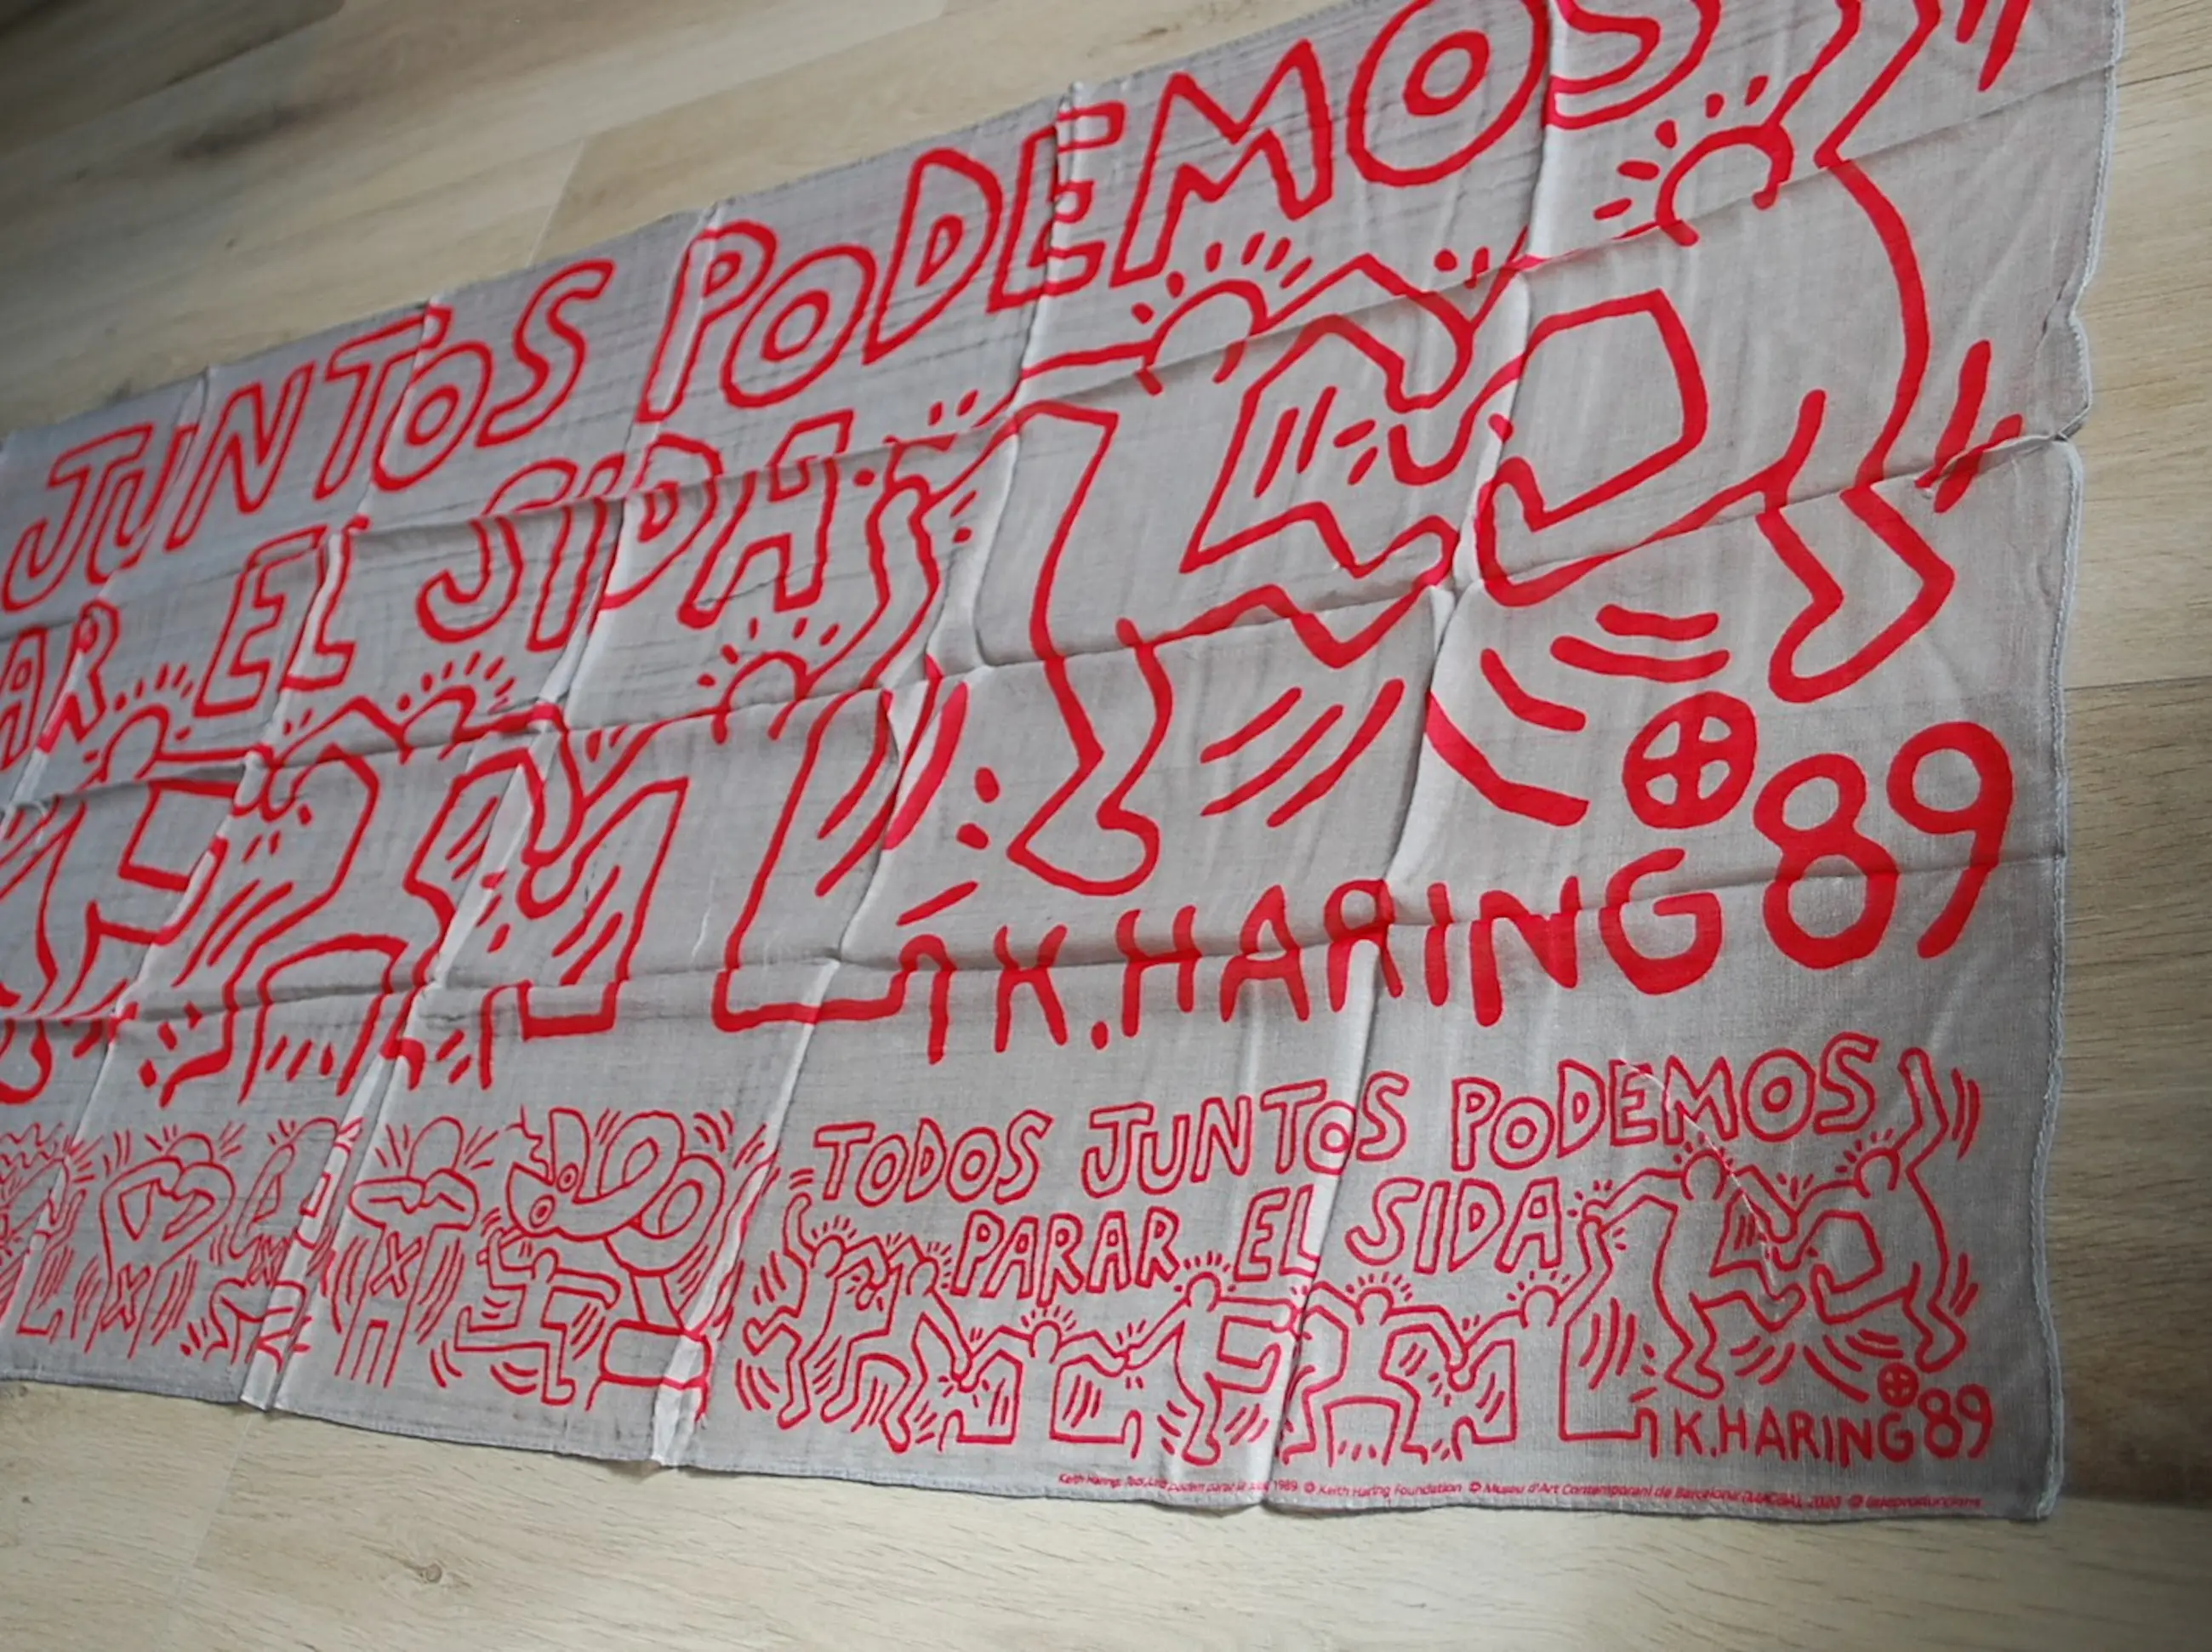 JUNTOS PODEMOS
AR... EL SIDA
K.HARING 89
TODOS JUNTOS PODEMOS
PARAR... EL SIDA
K.HARING 89
Keith Haring, 1989 © Keith Haring Foundation © Museu d'Art Contemporani de Barcelona (MACBA), 2020 ©